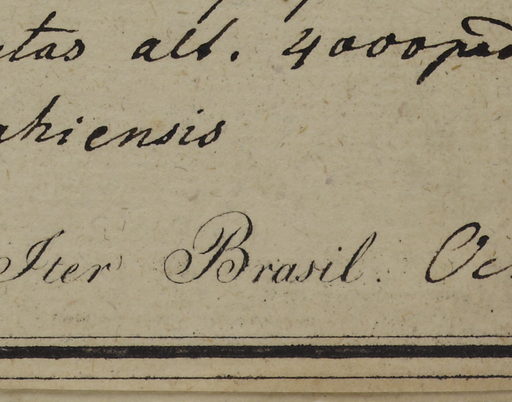 tas alt. 4000 ped
ahiensis
Iter Brasil. Oc